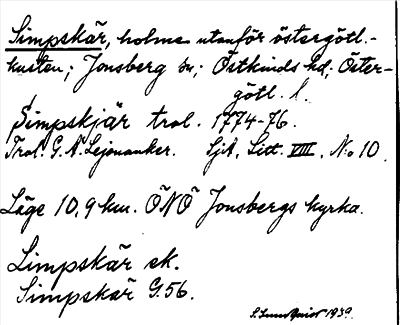 Simpskär, holme utanför östergötl.-
kusten; Jonsberg sn; Östkinds hd; Öster-
götl. l.
Simpskjär trol. 1774-76.
Trol. G. A. Leijonanker. SjK, Litt. VIII. No 10.
Läge 10,9 km. ÖNÖ Jonsbergs kyrka.
Limpskär ek.
Simpskär G.56.
1939.